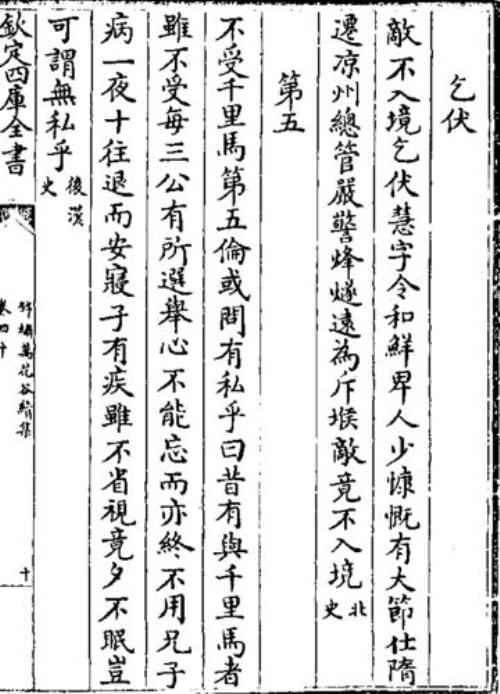 乞伏
敵不入境乞伏慧字令和鮮卑人少慷慨有大節仕隋
遷凉州總管嚴警烽燧遠為斥堠敵竟不入境北史
第五
不受千里馬第五倫或問有私乎曰昔有與千里馬者
雖不受每三公有所選舉心不能忘而亦終不用兄子
病一夜十往退而安寢子有疾雖不省視竟夕不眠豈
可謂無私乎後漢史
欽定四庫全書
錦繡萬花谷續集
卷四十
十